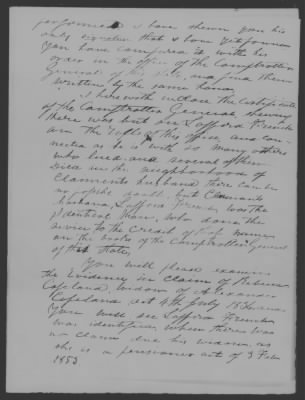 performed I have shewn you his
only signature that I have yet found
you have compared it with his
order in the office of the Comptroller
General of this State, and find them
written by the same hand
I herewith enclose the certificate
of the Comptroller General shewing
there was but one Safford French
on the books of his office, and con-
nected as he is with so many others
who lived and several of them
died in the neighborhood of
Claimants husband There can be
no possible doubt but Claimants
husband, Safford French was the
identical man, who done the
service to the credit of that name
on the books of the Comptroller General
of this State,
You will please examine
the evidence in claim of Rebecca
Copeland widow of Alexander
Copeland act 4th July
You will see Saffird French
was identified when there was
no claim due his widow, as
she is a pensioner act of 3 Feb
1853